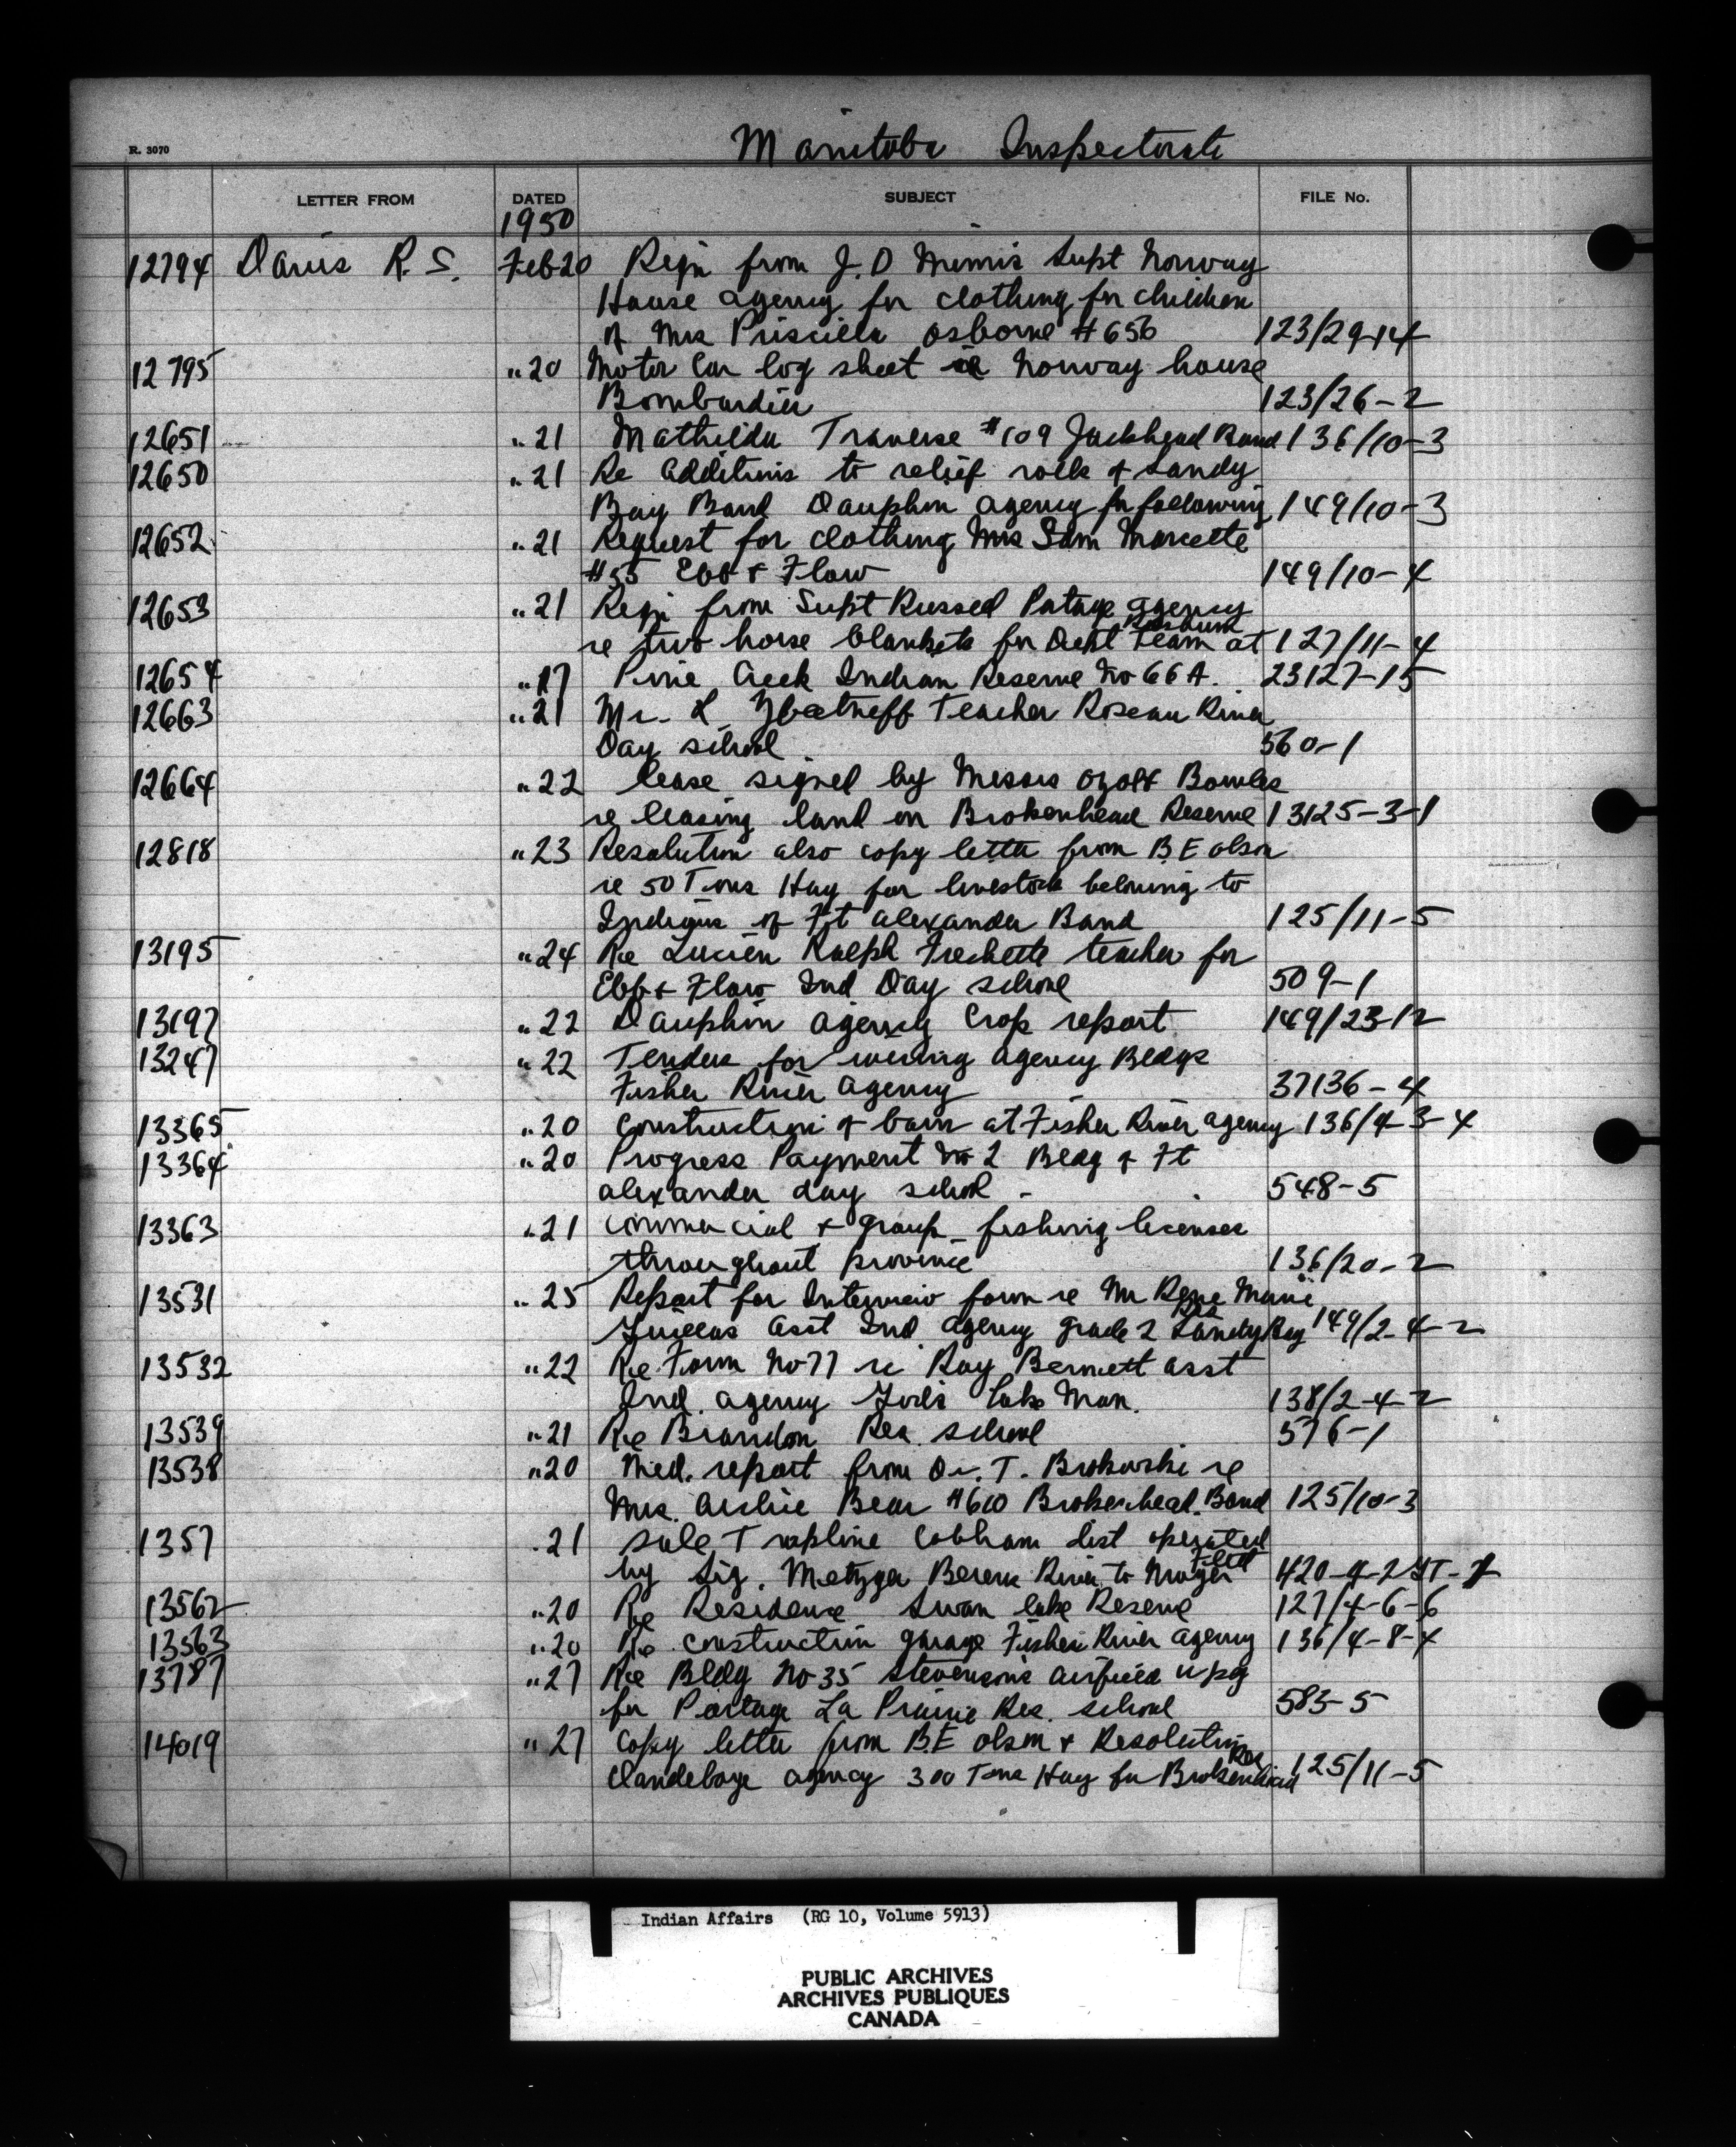 Manitoba Inspectorate
R. 3070
LETTER FROM DATED SUBJECT FILE No.
1950
12794 Davis R. S. Feb 20 Reqn from J. D Mimis Supt Norway
House agency for clothing for children
of Mrs Priscilla Osborne #656 123/29-14
12795 " 20 Motor Car log sheet re Norway house
Bombardier 123/26-2
12651 " 21 Mathilda Traverse #109 Jackhead Band 136/10-3
12650 " 21 Re additions to relief rolls of Sandy
Bay Band Dauphin agency for following 149/10-3
12652 " 21 Request for clothing Mrs Sam Marcette
#55 Ebb & Flow 149/10-4
12653 " 21 Reqn from Supt Russed Portage agency
re two horse blankets for Dept team at 127/11-4
12654 " 17 Pine Creek Indian Reserve No 66 A. 23127-15
12663 " 21 Mr. L Teacher Roseau River
Day school 560-1
12664 " 22 lease signed by Messrs Bowles
re leasing land on Brokenhead Reserve 13125-3-1
12818 " 23 Resolution also copy letter from B E olson
re 50 Tons Hay for livestock belonging to
Indians of Ft alexander Band 125/11-5
13195 " 24 Re Lucien Ralph Frechette teacher for
Ebb & Flow Ind Day school 509-1
13197 " 22 Dauphin agency Crop report 149/23-12
13247 " 22 Tenders for wiring agency Bldgs
Fisher River agency 37136-4
13365 " 20 construction of barn at Fisher River agency 136/4-3-4
13364 " 20 Progress Payment No 2 Bldg of Ft
alexander day school - 548-5
13363 " 21 commercial & group fishing licenses
throughout province 136/20-2
13531 " 25 Report for Interview form re Mr Rene Marie
asst Ind agency grade 2 Sandy Bay Res 149/2-4-2
13532 " 22 Re Form No 77 re Ray Bennett asst
Ind. agency God's lake Man. 138/2-4-2
13539 " 21 Re Brandon Res. school 576-1
13538 " 20 Med. report from Dr. T. Brokowski re
Mrs. Archie Bear #60 Brokenhead Band 125/10-3
1357 21 sale Trapline Cobham dist operated
by Sig. Metzger Berens River to 420-4-2
13562 " 20 Re Residence Swan lake Reserve 127/4-6-6
13563 " 20 Re construction garage Fisher River agency 136/4-8-4
13787 " 27 Re Bldg No 35 Stevensons airfield wpg
for Portage La Prairie Res. school 583-5
14019 " 27 Copy letter from B.E olson & Resolution
Clandeboye agency 300 Tons Hay for Brokenhead Res 125/11-5
Indian Affairs (RG 10, Volume 5913)
PUBLIC ARCHIVES
ARCHIVES PUBLIQUES
CANADA